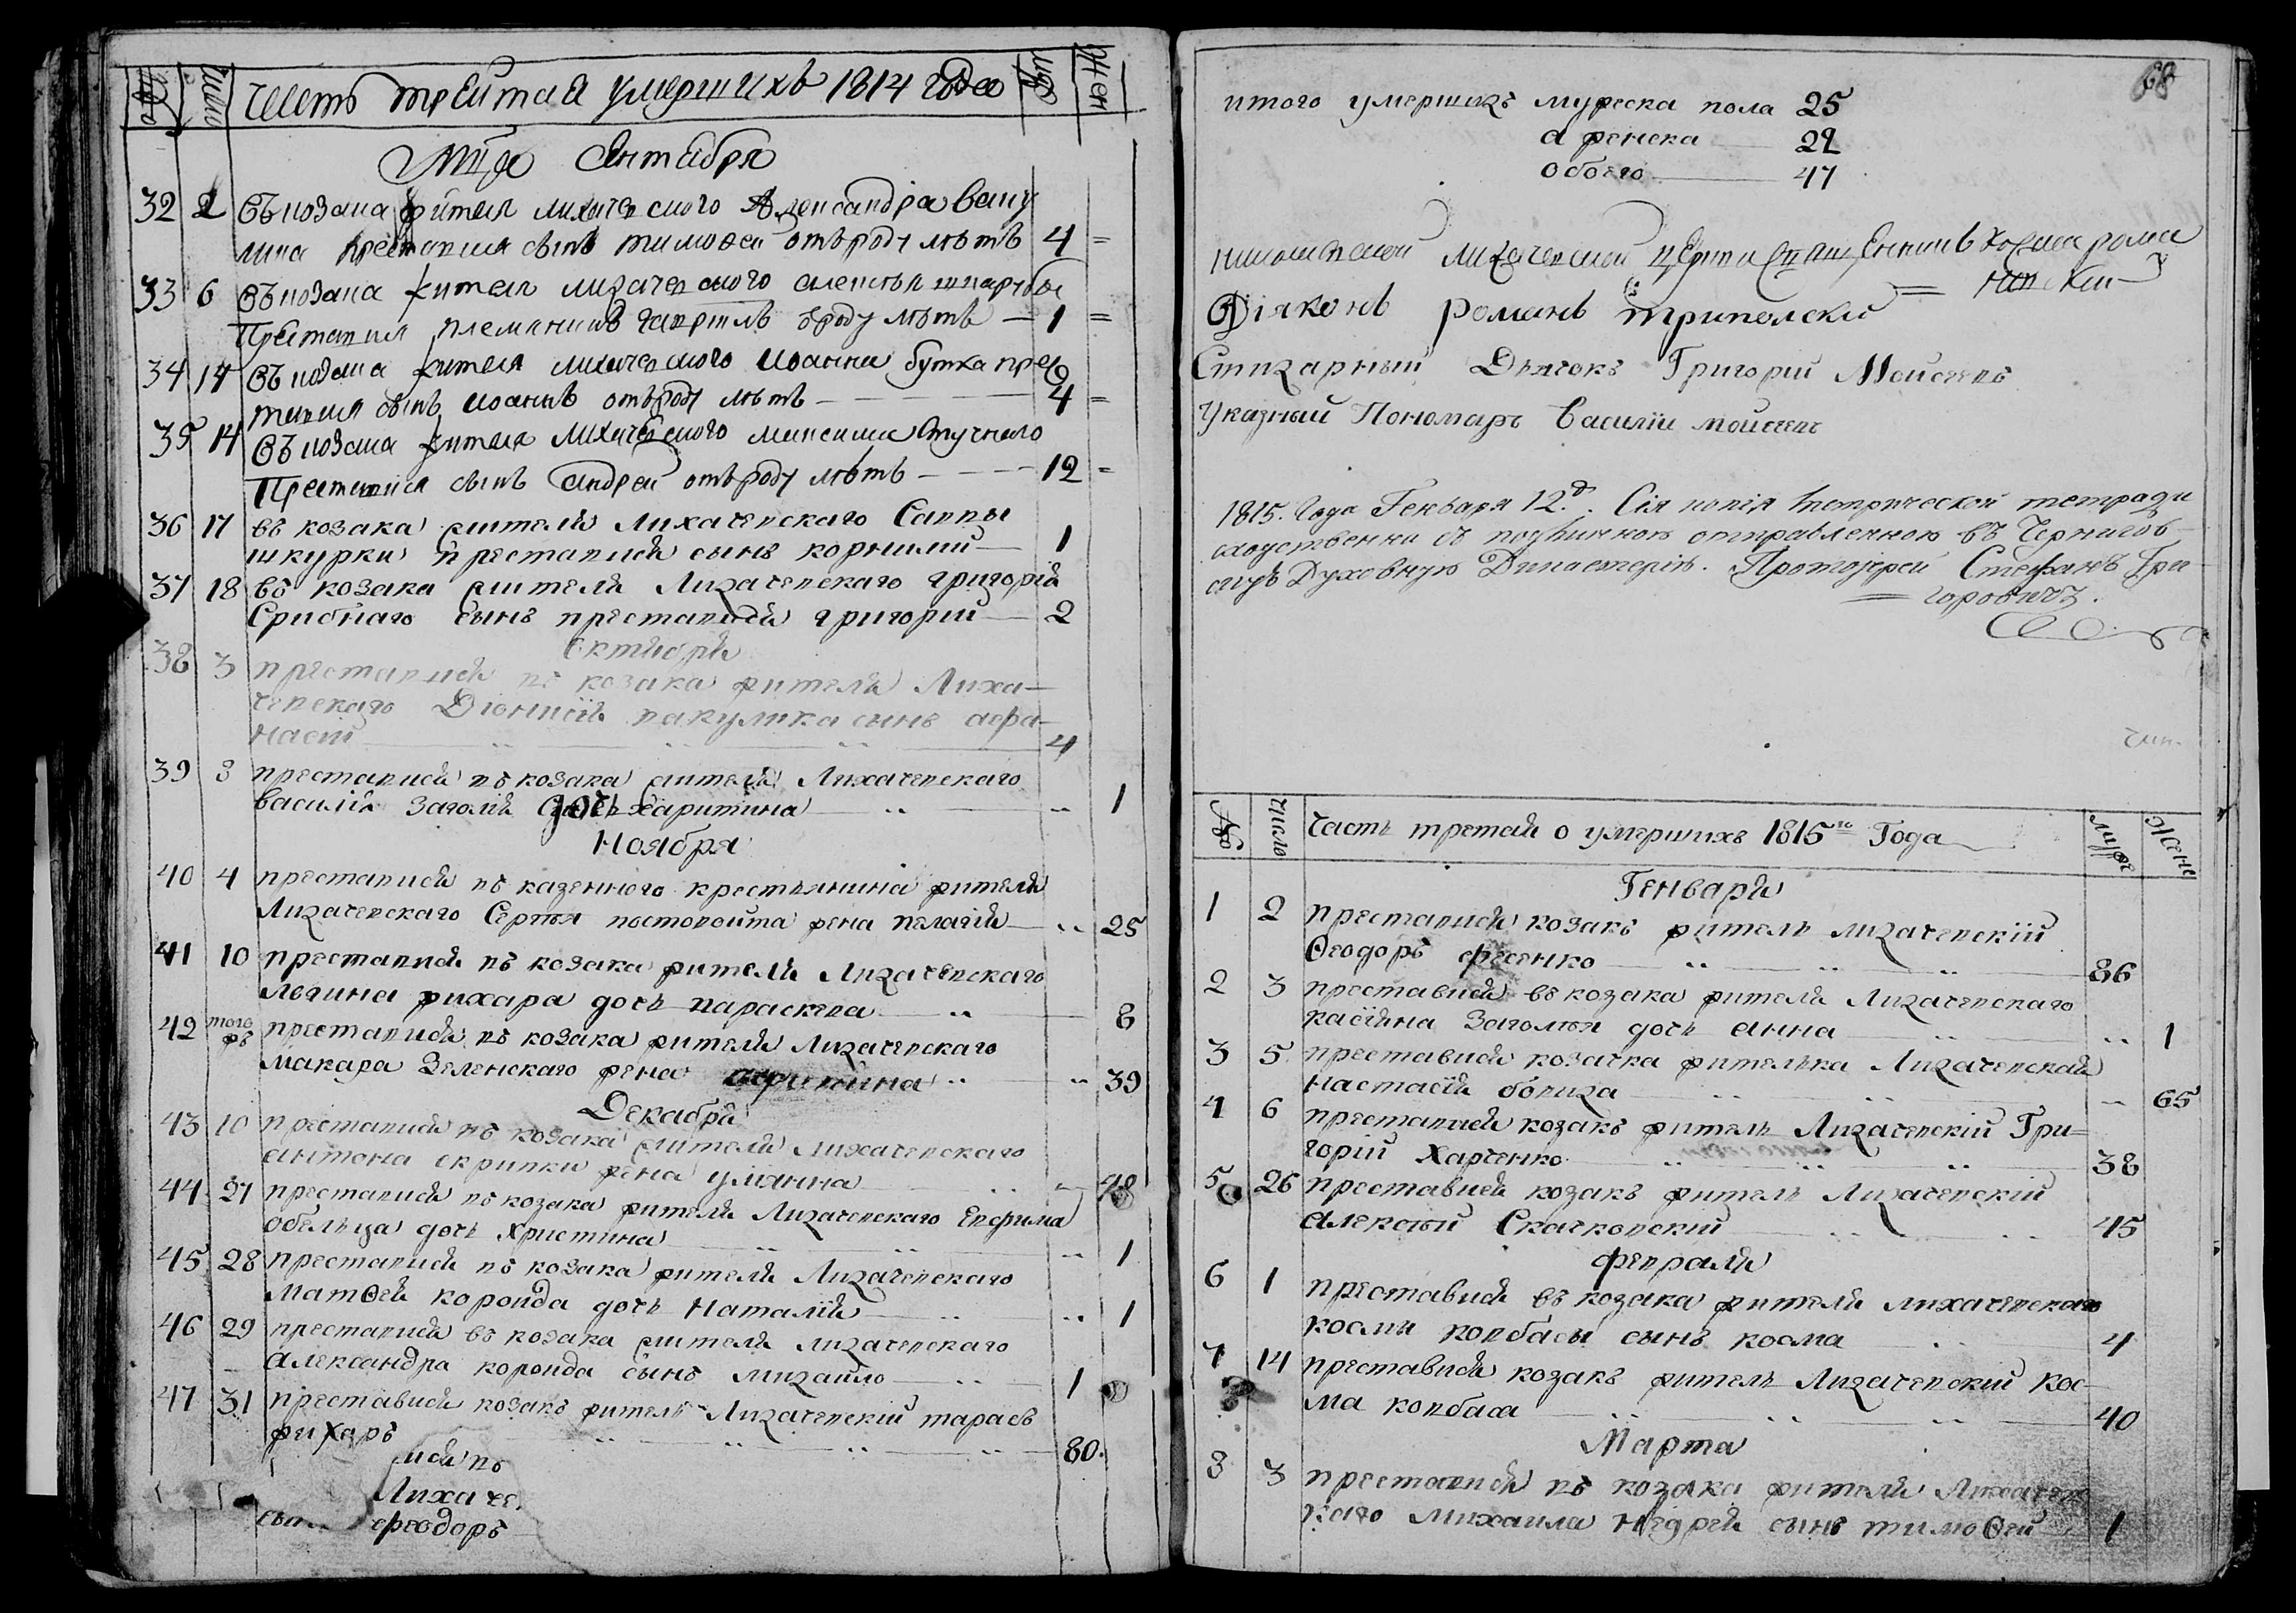 № Число Часть третая умершихъ 1814 года муж жен
Мца Сентября
32 2 Въ козака жителя лихачевского Александра Ваку
лика преставился сынъ тимофей отъ роду лѣтъ 4 =
33 6 Въ козака жителя лихачевского алексѣя шкарубы
Преставился племянникъ гавриилъ ѿ роду лѣтъ — 1 =
34 14 Въ козака жителя лихачевского иоанна бутка прес
тавился сынъ иоаннъ отъ роду лѣтъ — 4 =
35 14 Въ козака жителя лихачевского максима Стукало
Преставился сынъ андрей отъ роду лѣтъ — 12 =
36 17 въ козака жителя Лихачевскаго Саввы
шкурки преставися сынъ корнилий — 1
37 18 въ козака жителя Лихачевскаго григорія
Срибнаго сынъ преставися григорий — 2
Октября
38 3 преставися въ козака жителя Лиха-
чевскаго Діонисія вакулика сынъ афа-
насій 4
39 3 преставися въ козака жителя Лихачевскаго
василія Заголія дочь харитина 1
Ноября
40 4 преставися въ казенного крестьянина жителя
Лихачевскаго Сергѣя постовойта жена пелагія 25
41 10 преставися въ козака жителя Лихачевскаго
логина жихара дочь параскева 8
42 того ж преставися въ козака жителя Лихачевскаго
Макара Зеленскаго жена 39
Декабря
43 10 преставися въ козака жителя лихачевскаго
антона скрипки жена улианна
44 27 преставися въ козака жителя Лихачевскаго Евфима
обельца дочь Христина 1
45 28 преставися въ козака жителя Лихачевскаго
Матѳея коровда дочь Наталія 1
46 29 преставися въ козака жителя лихачевскаго
александра коровда сынъ михаило 1
47 31 преставися козакъ житель Лихачевскій тарасъ
жихаръ 80.
ися въ
Лихаче
ѳеодоръ
68
итого умершихъ мужеска пола 25
а женска 22
обоего 47
николаевской лихачевской церкви священникъ Козма рома
новский
Діяконъ романъ триполский
Стихарный Дьячокъ Григорій Моисеевъ
Указный Пономарь Василій моисеевъ
1815. Года Генваря 12д. Сія копія метрической тетради
сходственна съ подлинною отправленною въ Чернигов-
скую Духовную Дикастерію. Протоіерей Стефанъ Гри-
горовичъ.
№ число Часть третая о умершихъ 1815го Года муже Жене
Генваря
1 2 преставися козакъ житель лихачевскій
Ѳеодоръ фесенко 86
2 3 преставися въ козака жителя Лихачевскаго
касіяна Заголѣя дочь анна 1
3 5 преставися козачка жителька Лихачевская
настасія 65
4 6 преставися козакъ житель Лихачевскій Гри-
горій Харченко 38
5 26 преставися козакъ житель Лихачевскій
алексѣй Скачковскій 45
февраля
6 1 преставися въ козака жителя лихачевскаго
космы ковбасы сынъ косма 4
7 14 преставися козакъ житель Лихачевскій Кос-
ма ковбаса 40
Марта
8 3 преставися въ козака жителя Лихачевс
каго михаила недрей сынъ тимоѳей 1